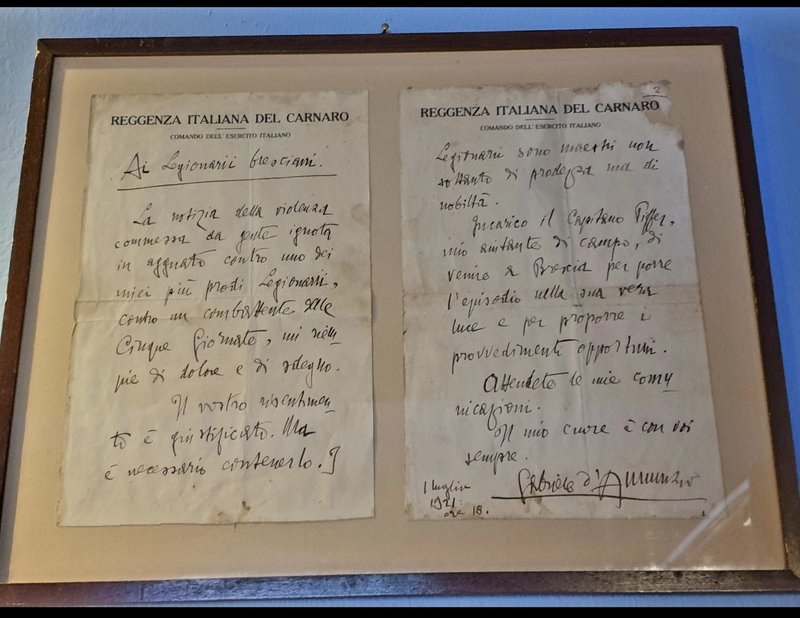 REGGENZA ITALIANA DEL CARNARO
COMANDO DELL' ESERCITO ITALIANO
Ai Legionarii bresciani.
La notizia della violenza
commessa da gente ignota
in agguato contro uno dei
miei più prodi Legionarii,
contro un combattente delle
Cinque Giornate, mi riem-
pie di dolore e di sdegno.
Il vostro risentimen-
to è giustificato. Ma
è necessario contenerlo. I
2
REGGENZA ITALIANA DEL CARNARO
COMANDO DELL' ESERCITO ITALIANO
Legionarii sono maestri non
soltanto di prodezza ma di
nobiltà.
Incarico il Capitano Piffer,
mio aiutante di campo, di
venire a Brescia per porre
l'episodio nella sua vera
luce e per proporre i
provvedimenti opportuni.
Attendete le mie comu
nicazioni.
Il mio cuore è con voi
sempre.
Gabriele d'Annunzio
1 luglio
1921.
ore 18.